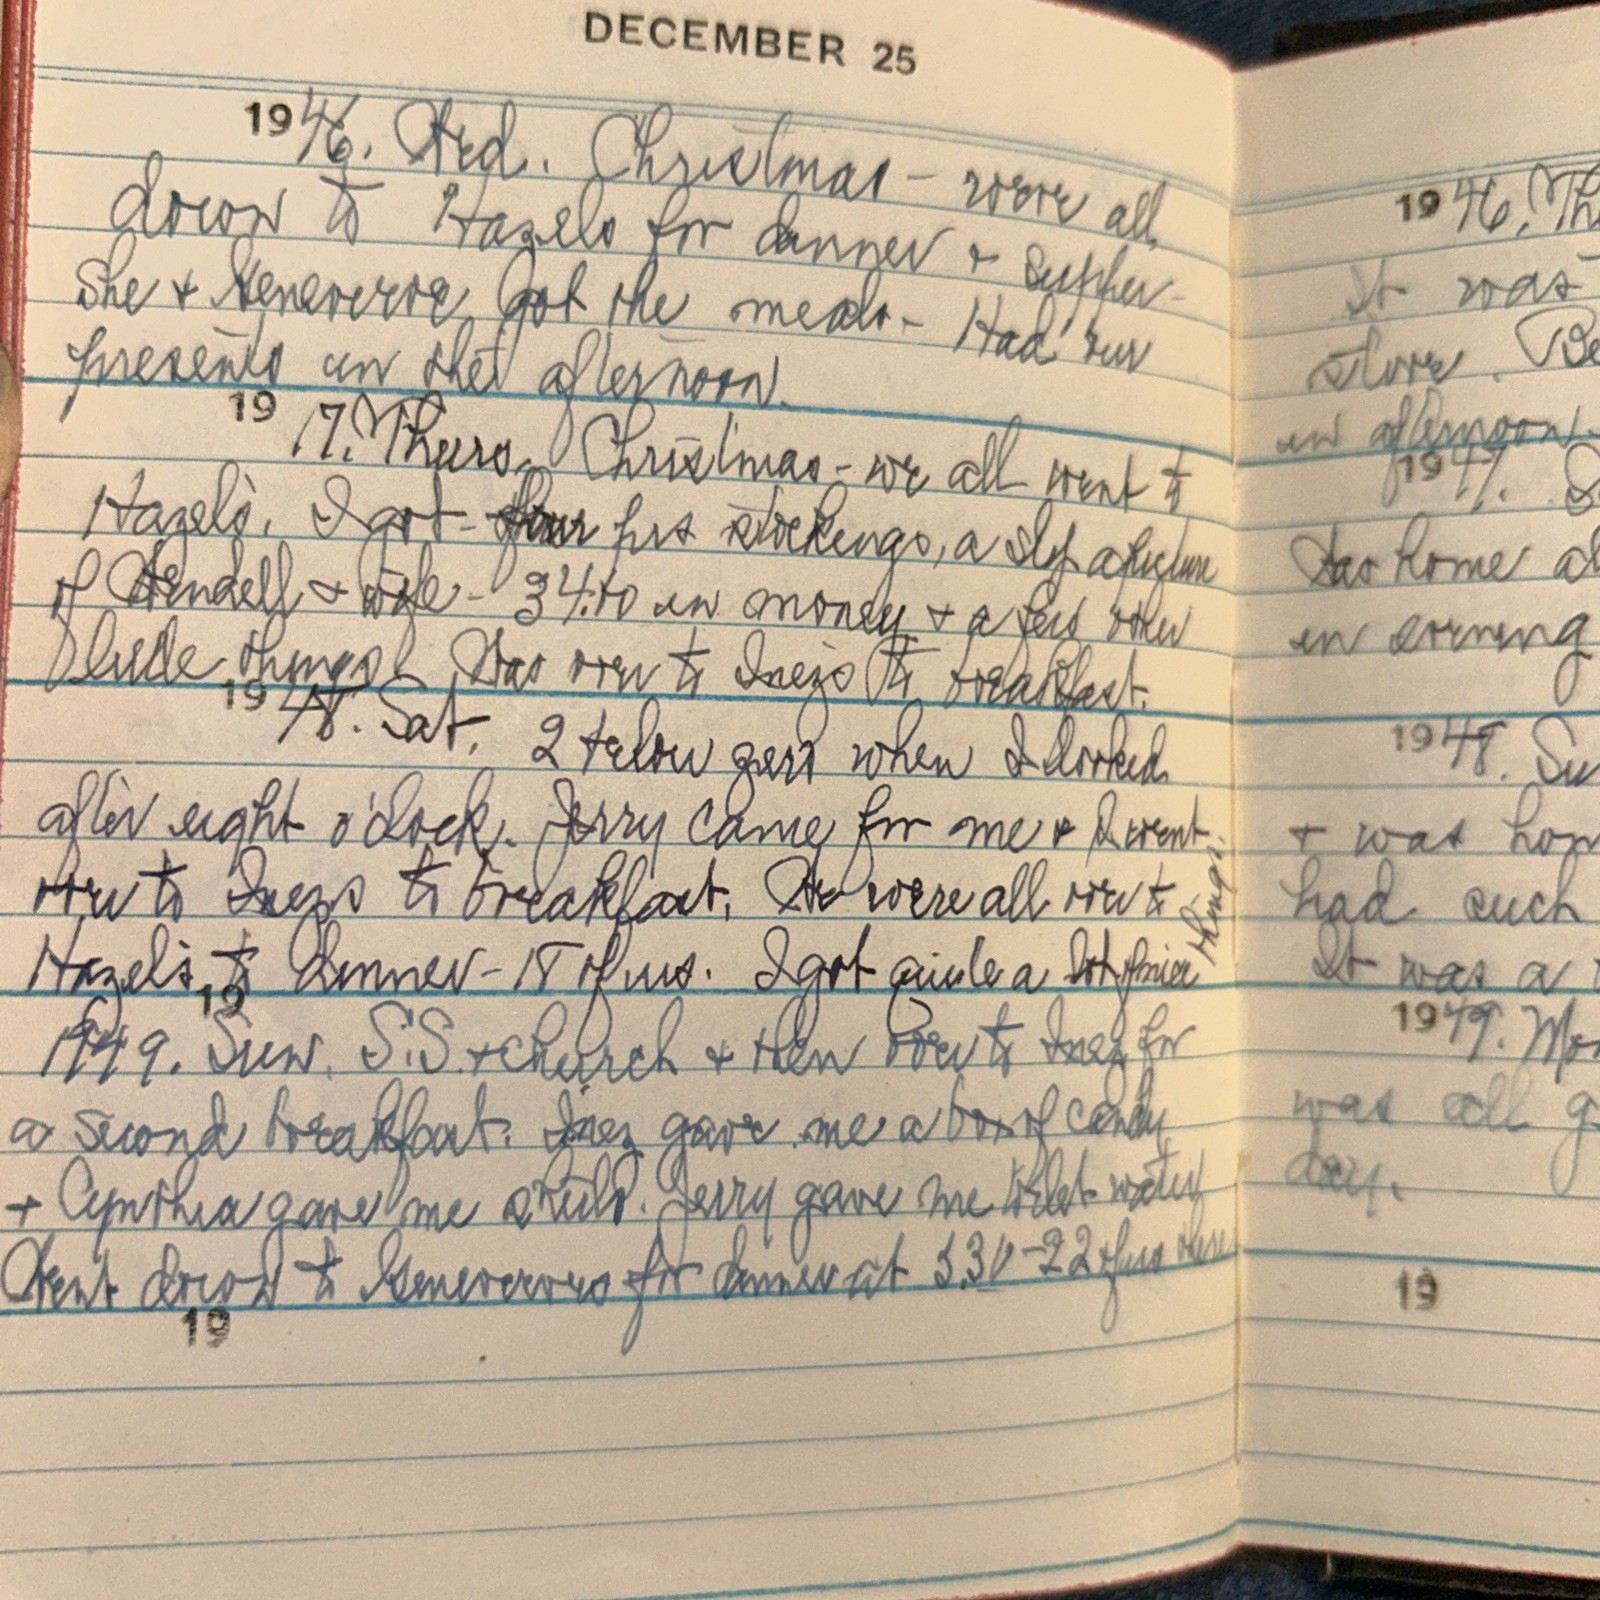 DECEMBER 25
1946. Wed. Christmas - were all
down to Hazels for dinner + supper -
She + Genevieve got the meals - Had our
presents in the afternoon.
19
17. Thurs. Christmas - we all went to
Hazel's. I got - four prs stockings, a slip a picture
of Wendell + wife - 34.10 in money + a few other
little things. Was over to Inezs to breakfast.
1948. Sat. 2 below zero when I looked
after eight o'clock. Jerry came for me + I went
over to Inezs to breakfast. We were all over to
Hazel's to dinner - 18 of us. I got quite a lot of nice
things.
19
1949. Sun. S.S. + church + then over to Inez for
a second breakfast. Inez gave me a box of candy
+ Cynthia gave me. Jerry gave me toilet water
Went down to Genevieves for dinner at 3.30 - 22 of us there
19
1946. Th
It was
store. Be
in afternoon.
1947.
Was home al
in evening
1948. Su
+ was hom
had such
It was a
1949. Mon
was all g
day.
19